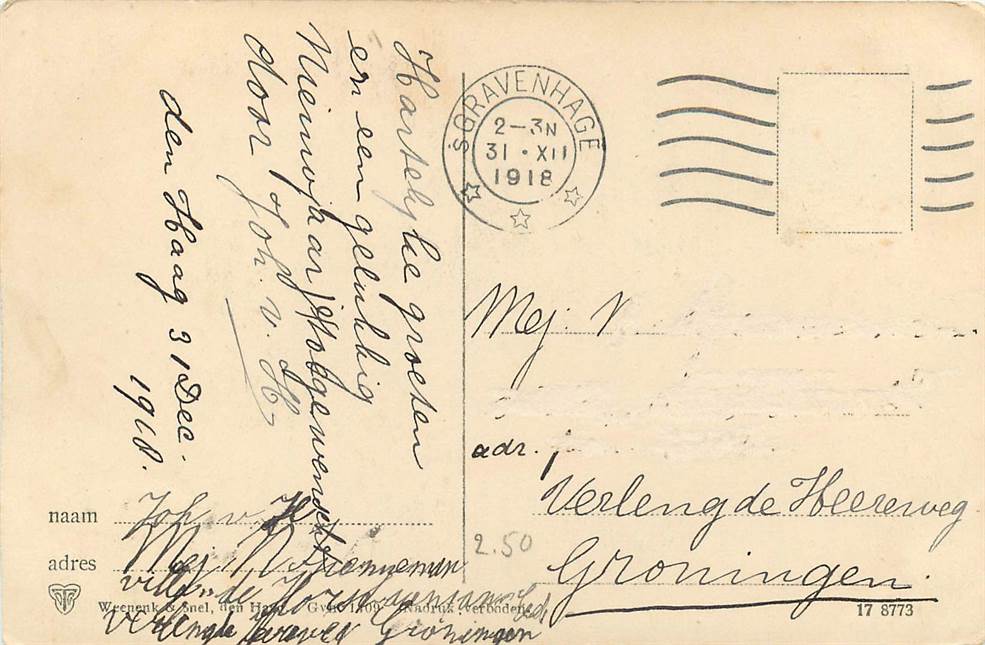 Hartelyke groeten
en een gelukkig
Nieuwjaar, toegewenscht
door Joh. v. H.
den Haag 31 Dec.
1918.
'SGRAVENHAGE
2-3N
31·XII
1918
Mej. N
adr.
Verlengde Heereweg
Groningen.
naam Joh. v. H
adres Mej N.
villa de
Verlengde Heereweg Groningen
Weenenk & Snel, den Haag. Nadruk verboden.
17 8773
2.50